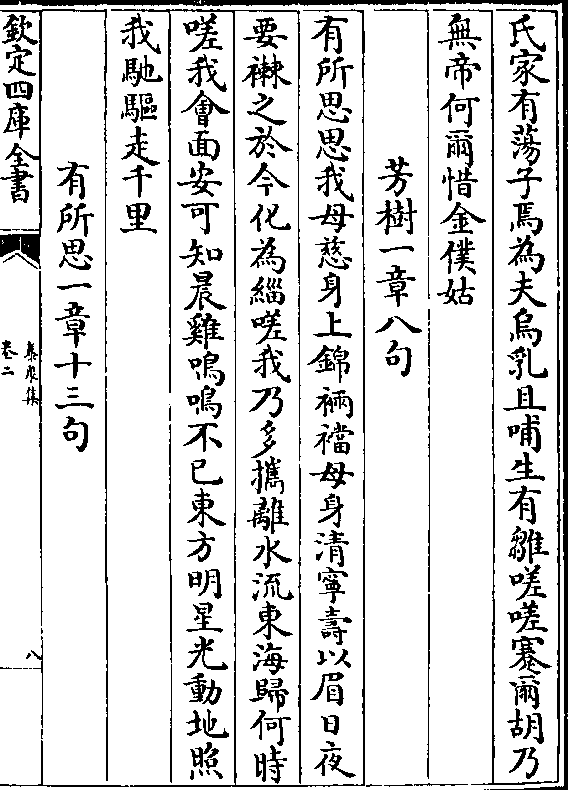 氏家有蕩子焉為夫烏乳且哺生有雛嗟嗟蹇爾胡乃
無帝何爾惜金僕姑
芳樹一章八句
有所思思我母慈身上錦裲襠母身清寧壽以眉日夜
要襋之於今化為緇嗟我乃多攜離水流東海歸何時
嗟我會面安可知晨雞鳴鳴不已東方明星光動地照
我馳驅走千里
有所思一章十三句
欽定四庫全書
卷二
八